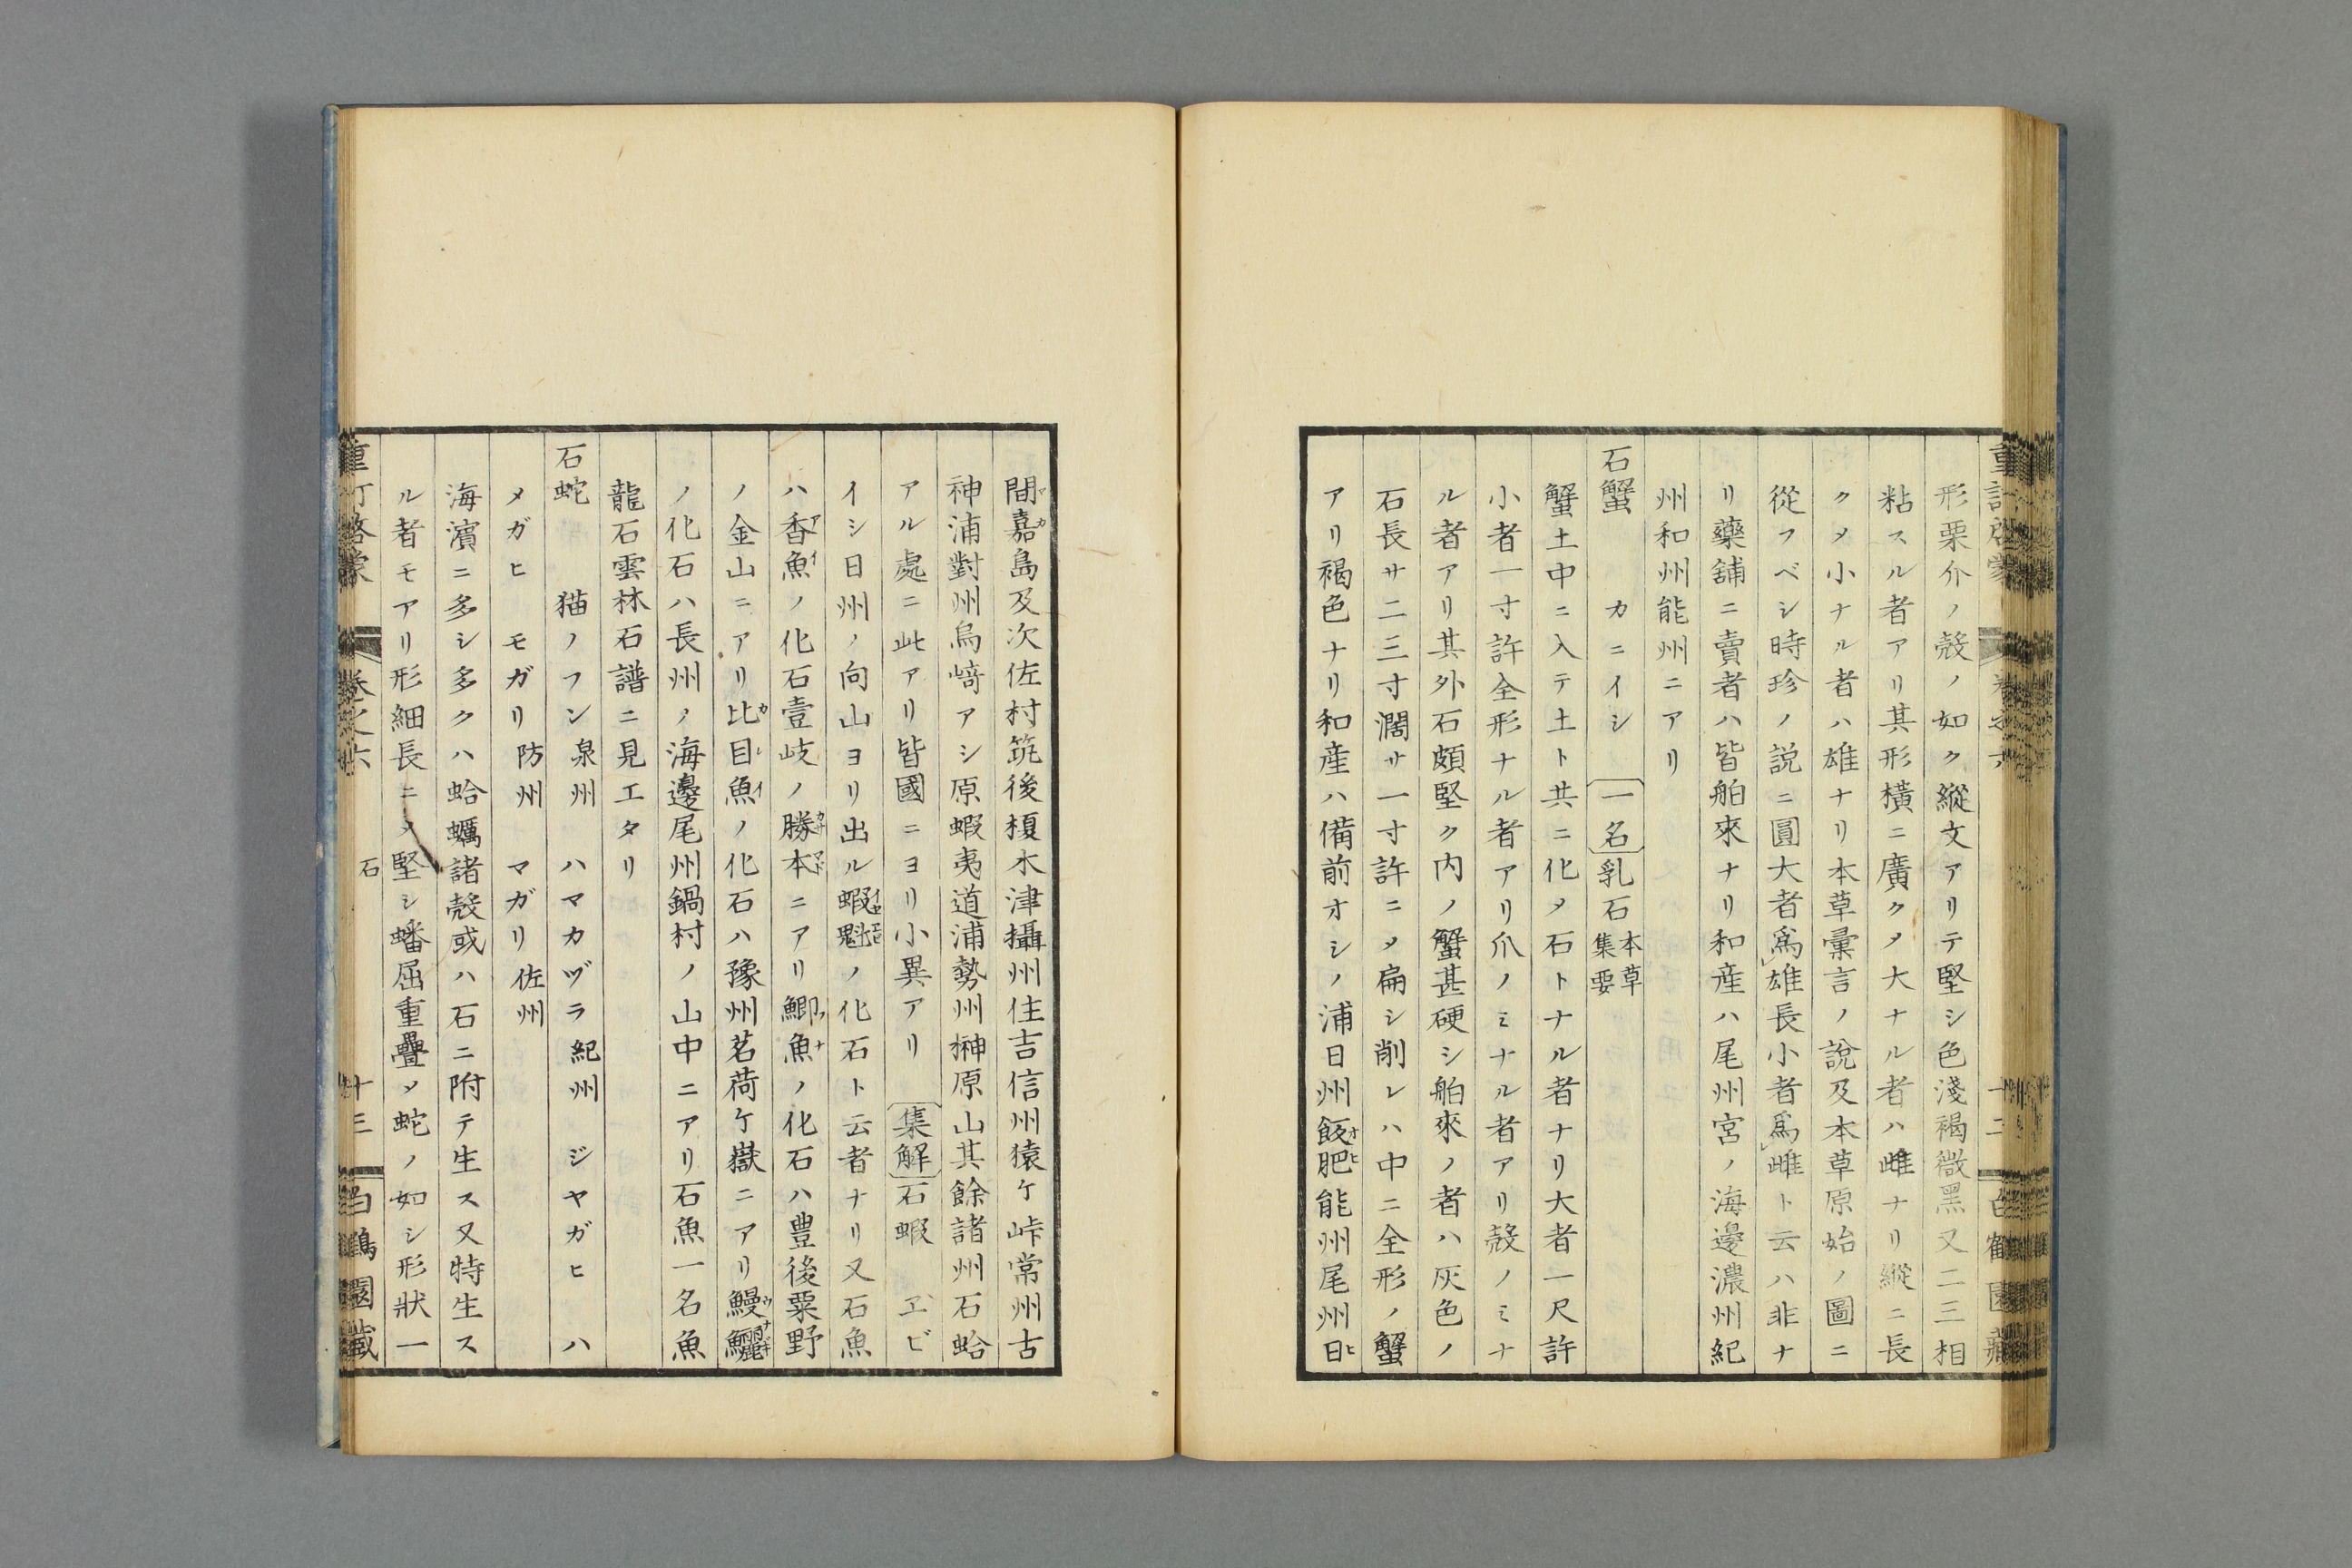 形栗介ノ殻ノ如ク縱文アリテ堅シ色淺褐微黒又二三相
粘スル者アリ其形橫ニ廣クメ大ナル者ハ雌ナリ縱ニ長
クメ小ナル者ハ雄ナリ本草彙言ノ說及本草原始ノ圖ニ
從フベシ時珍ノ説ニ圓大者爲雄長小者爲雌ト云ハ非ナ
リ藥舖ニ賣者ハ皆舶來ナリ和産ハ尾州宮ノ海邊濃州紀
州和州能州ニアリ
石蟹 カニイシ 一名 乳石 本草集要
蟹土中ニ入テ土ト共ニ化メ石トナル者ナリ大者一尺許
小者一寸許全形ナル者アリ爪ノミナル者アリ殻ノミナ
ル者アリ其外石頗堅ク内ノ蟹甚硬シ舶來ノ者ハ灰色ノ
石長サ二三寸濶サ一寸許ニメ扁シ削レハ中ニ全形ノ蟹
アリ褐色ナリ和産ハ備前オシノ浦日州飫肥能州尾州日
間嘉島及次佐村筑後榎木津攝州住吉信州猿ケ峠常州古
神浦對州烏﨑アシ原蝦夷道浦勢州榊原山其餘諸州石蛤
アル處ニ此アリ皆國ニヨリ小異アリ 集解 石蝦 ヱビ
イシ日州ノ向山ヨリ出ル蝦魁ノ化石ト云者ナリ又石魚
ハ香魚ノ化石壹岐ノ勝本ニアリ鯽魚ノ化石ハ豊後粟野
ノ金山ニアリ比目魚ノ化石ハ豫州茗荷ケ嶽ニアリ鰻鱺
ノ化石ハ長州ノ海邊尾州鍋村ノ山中ニアリ石魚一名魚
龍石雲林石譜ニ見エタリ
石蛇 猫ノフン 泉州 ハマカヅラ 紀州 ジヤガヒ ハ
メガヒ モガリ 防州 マガリ 佐州
海濱ニ多シ多クハ蛤蠣諸殻或ハ石ニ附テ生ス又特生ス
ル者モアリ形細長ニメ堅シ蟠屈重疊メ蛇ノ如シ形狀一
重訂啓蒙 卷之六 石 十三 白鶴園藏